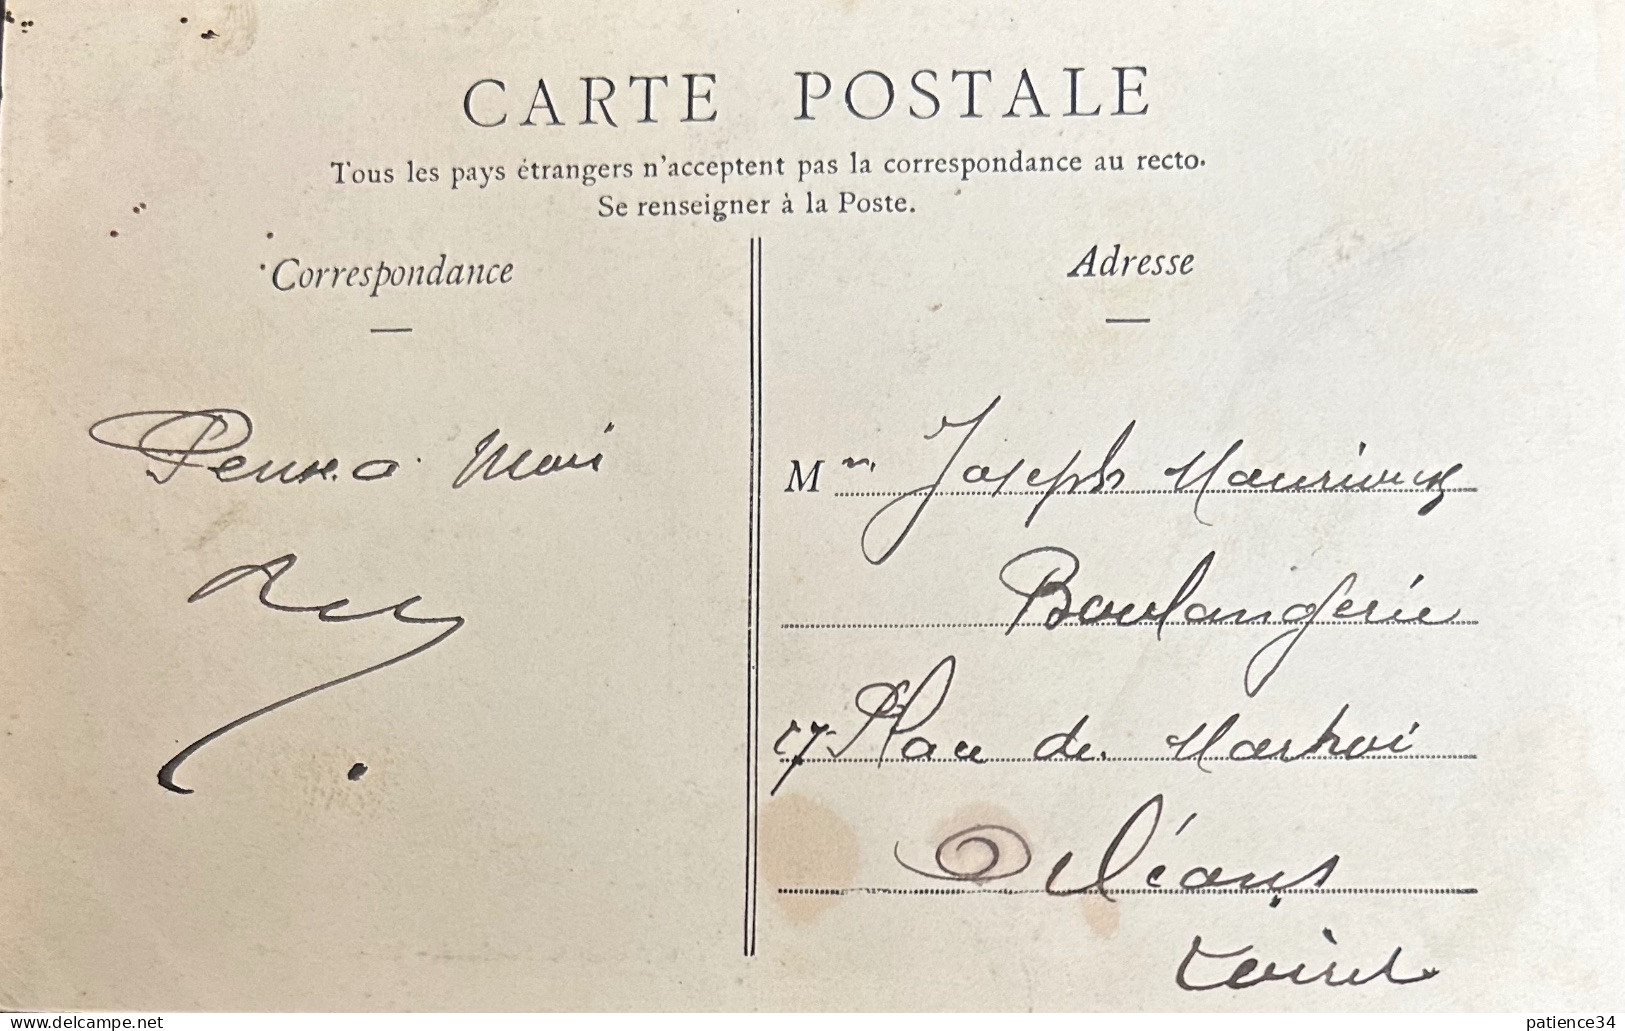 CARTE POSTALE
Tous les pays étrangers n'acceptent pas la correspondance au recto.
Se renseigner à la Poste.
Correspondance
Adresse
Pense a Moi
M Joseph
Boulangerie
Place de
Orléans
Loiret
www.delcampe.net
patience34